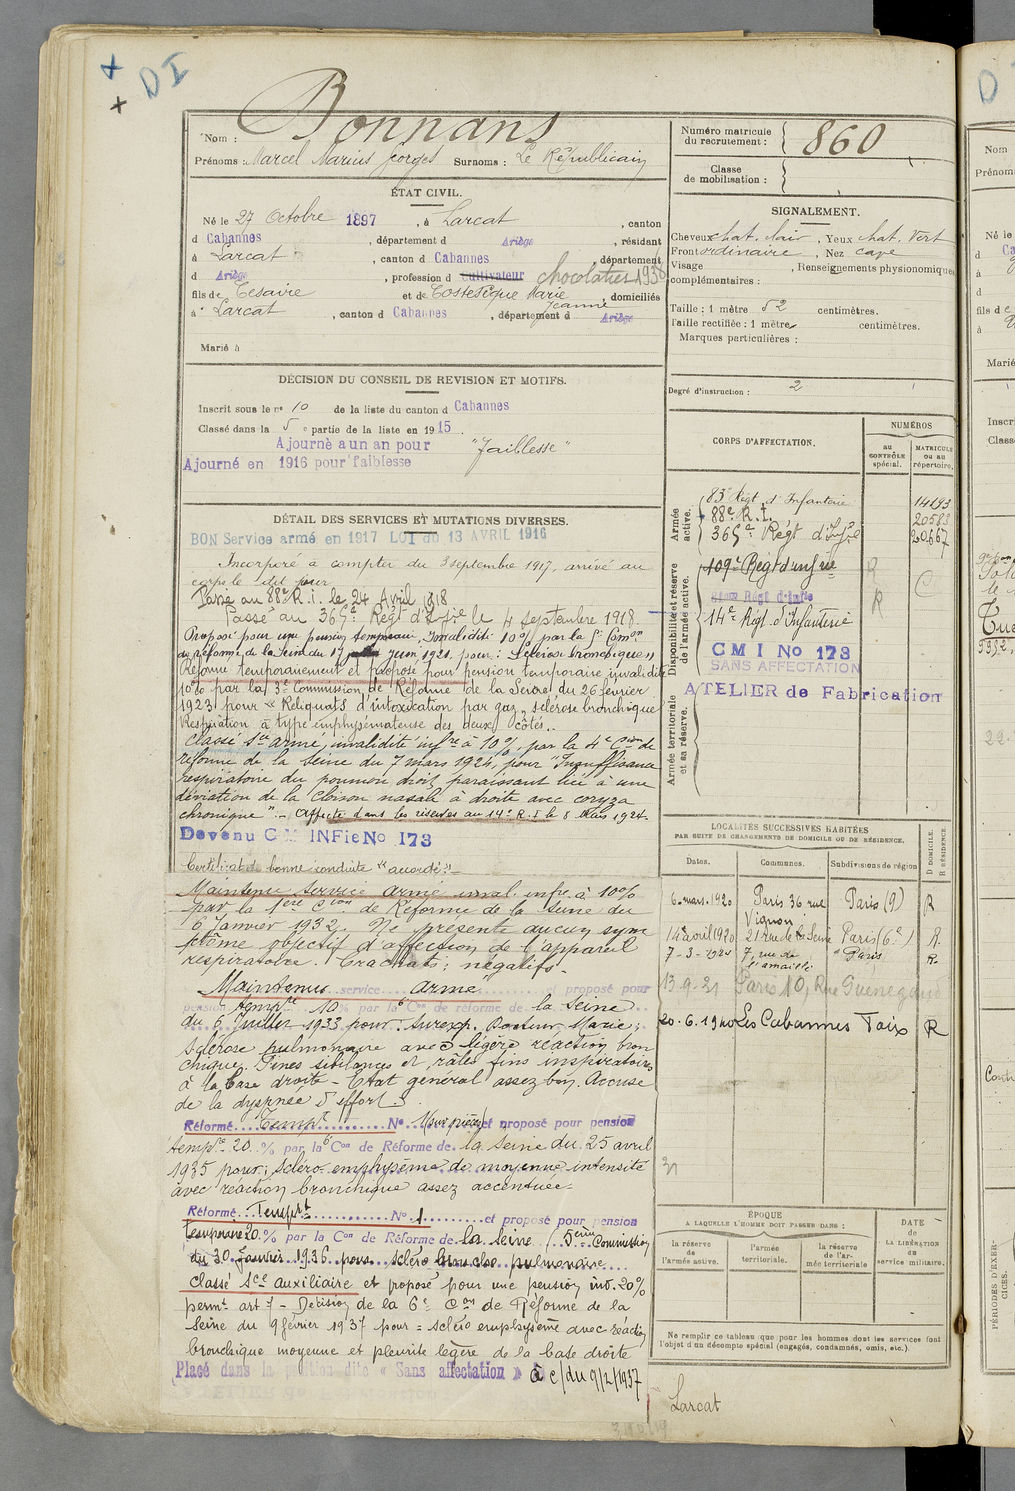 DI
Nom : Bonnans
Prénoms : Marcel Marius Georges Surnoms : Le Républicain
Numéro matricule du recrutement : 860
Classe de mobilisation :
ÉTAT CIVIL.
Né le 27 Octobre 1897, à Larcat, canton
d Cabannes, département d Ariège, résidant
à Larcat, canton d Cabannes, département
d Ariège, profession d Cultivateur chocolatier 1938
fils de Cesaire et de Marie Jeanne, domiciliés
à Larcat, canton d Cabannes, département d Ariège
Marié à
SIGNALEMENT.
Cheveux chat. clair, Yeux chat. Vert
Front ordinaire, Nez cave
Visage , Renseignements physionomiques
complémentaires :
Taille : 1 mètre 52 centimètres.
Taille rectifiée : 1 mètre centimètres.
Marques particulières :
Degré d'instruction : 2
DÉCISION DU CONSEIL DE REVISION ET MOTIFS.
Inscrit sous le n° 10 de la liste du canton d Cabannes
Classé dans la 5e partie de la liste en 1915.
Ajourné a un an pour "Faiblesse"
Ajourné en 1916 pour faiblesse
DÉTAIL DES SERVICES ET MUTATIONS DIVERSES.
BON Service armé en 1917 LOI du 13 AVRIL 1916
Incorporé à compter du 3 septembre 1917, arrivé au
corps le dit jour
Passé au 88e R.I. le 24 Avril 1918
Passé au 365e Régt d'Infie le 4 septembre 1918.
Proposé pour une pension temporaire, Invalidité 10% par la
de réforme de la Seine du 17 Juin 1920, pour : Sclérose bronchique"
Réformé temporairement et proposé pour pension temporaire invalidité
10% par la 3e Commission de Réforme de la Seine du 26 février
1923 pour "Reliquats d'intoxication par gaz, sclérose bronchique
Respiration à type emphysémateuse des deux côtés..
Classé sce armé, invalidité infre à 10%, par la 4e Cion de
réforme de la Seine du 7 mars 1924, pour "Insuffisance
respiratoire du poumon droit paraissant liée à une
déviation de la cloison nasale à droite avec coryza
chronique". - Affecté dans les réserves au 14e R.I le 8 Mars 1924.
Devenu C M INFie No 173
Certificat de bonne conduite "accordé"
Maintenu service armé inval. infre à 10%
par la 1ère Cion de Réforme de la Seine du
6 Janvier 1932. Ne présente aucun symp
tôme objectif d'affection de l'appareil
respiratoire. Crachats : négatifs.
Maintenu service armé et proposé pour
pension tempre 10% par la 6e Con de réforme de la Seine
du 6 Juillet 1933 pour : Docteur Marie ;
sclérose pulmonaire avec légère réaction bron
chique. Fines sibilances et râles fins inspiratoires
à la base droite - Etat général assez bon. Accuse
de la dyspnée d'effort.
Réformé Tempt N° 1 et proposé pour pension
tempre 20 % par la 6e Con de Réforme de la Seine du 25 avril
1935 pour : scléro emphysème de moyenne intensité
avec réaction bronchique assez accentuée.
Réformé Tempt N° 1 et proposé pour pension
temporaire 20 % par la Con de Réforme de la Seine (5eme Commission
du 30 Janvier 1936 pour scléro bronche pulmonaire
Classé sce auxiliaire et proposé pour une pension inv. 20%
permt art 7 - Décision de la 6e Con de Réforme de la
Seine du 9 février 1937 pour = scléro emphysème avec réaction
bronchique moyenne et pleurite légère de la base droite
Placé dans la position dite « Sans affectation » à c/ du 9/2/1937
CORPS D'AFFECTATION.
NUMÉROS
au CONTRÔLE spécial.
MATRICULE OU AU répertoire.
Armée active.
83e Régt d'Infanterie 14193
88e R.I. 20583
365e Régt d'Infie 20667
Disponibilité et réserve de l'armée active.
109e Régt d'infie R
Régt d'Infie R
14e Régt d'Infanterie
CMI No 173
SANS AFFECTATION
ATELIER de Fabrication
Armée territoriale et sa réserve.
LOCALITÉS SUCCESSIVES HABITÉES
PAR SUITE DE CHANGEMENTS DE DOMICILE OU DE RÉSIDENCE.
Dates. Communes. Subdivisions de région D DOMICILE. R RÉSIDENCE.
6. mars. 1920 Paris 36 rue Vignon Paris (9) R
14 avril 1920 21 rue de la Seine Paris (6e) R.
7-3-1924 7, rue de Paris R.
13-9-21 Paris 10, Rue Guenegaud
20.6.1940 Les Cabannes Foix R
ÉPOQUE
A LAQUELLE L'HOMME DOIT PASSER DANS :
la réserve de l'armée active.
l'armée territoriale.
la réserve de l'armée territoriale
DATE de LA LIBÉRATION du service militaire.
Ne remplir ce tableau que pour les hommes dont les services font
l'objet d'un décompte spécial (engagés, condamnés, omis, etc.)
Larcat
PÉRIODES D'EXERCICES.